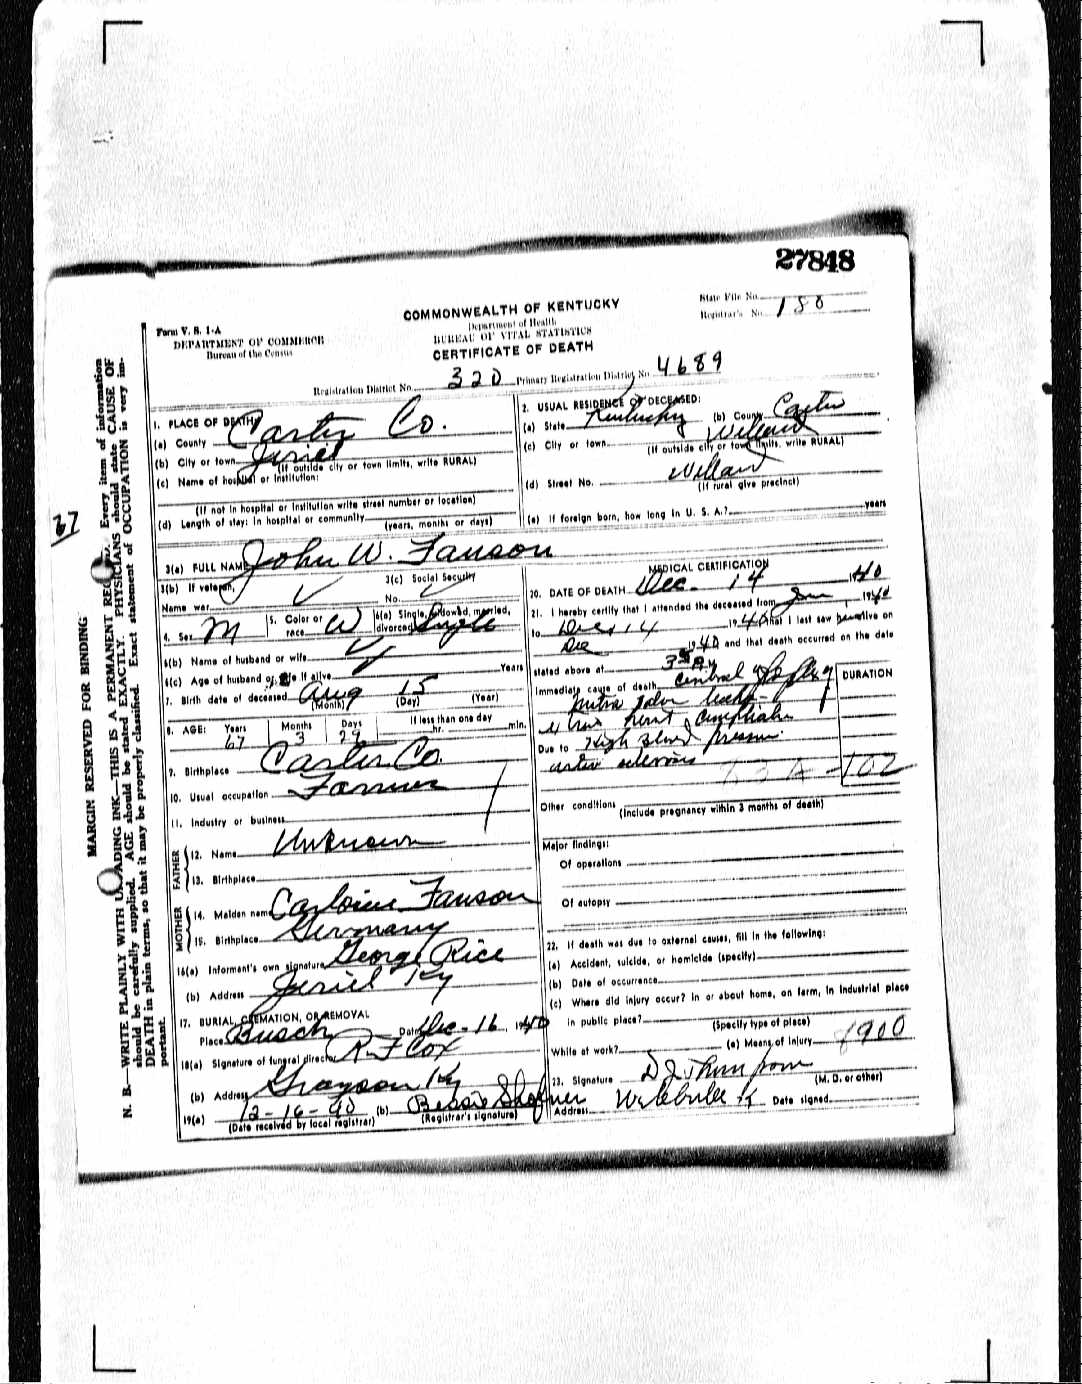 27848
State File No.
Registrar's No. 180
Form V. S. 1-A
DEPARTMENT OF COMMERCE
Bureau of the Census
COMMONWEALTH OF KENTUCKY
Department of Health
BUREAU OF VITAL STATISTICS
CERTIFICATE OF DEATH
Registration District No. 320 Primary Registration District No. 4689
MARGIN RESERVED FOR BINDING
N. B.—WRITE PLAINLY WITH UNFADING INK—THIS IS A PERMANENT RECORD. Every item of information
should be carefully supplied. AGE should be stated EXACTLY. PHYSICIANS should state CAUSE OF
DEATH in plain terms, so that it may be properly classified. Exact statement of OCCUPATION is very im-
portant.
67
1. PLACE OF DEATH
(a) County Carter Co.
(b) City or town Jeriel
(If outside city or town limits, write RURAL)
(c) Name of hospital or institution:
(If not in hospital or institution write street number or location)
(d) Length of stay: In hospital or community
(years, months or days)
2. USUAL RESIDENCE OF DECEASED:
(a) State Kentucky (b) County Carter
(c) City or town Willard
(If outside city or town limits, write RURAL)
(d) Street No. Willard
(If rural give precinct)
(e) If foreign born, how long in U. S. A.? years
3(a) FULL NAME John W. Fauson
3(b) If veteran,
Name war
3(c) Social Security
No.
4. Sex M 5. Color or race W 6(a) Single, widowed, married, divorced Single
6(b) Name of husband or wife
6(c) Age of husband or wife if alive Years
7. Birth date of deceased Aug 15
(Month) (Day) (Year)
8. AGE: Years 67 Months 3 Days 29 If less than one day hr. min.
9. Birthplace Carter Co.
10. Usual occupation Farmer
11. Industry or business
FATHER
12. Name Unknown
13. Birthplace
MOTHER
14. Maiden name Carloine Fauson
15. Birthplace Germany
16(a) Informant's own signature George Rice
(b) Address Jeriel Ky
17. BURIAL, CREMATION, OR REMOVAL
Place Busch Date Dec-16, 1940
18(a) Signature of funeral director R. F Cox
(b) Address Grayson Ky
19(a) 12-16-40 (b) Bessie Shofner
(Date received by local registrar) (Registrar's signature)
MEDICAL CERTIFICATION
20. DATE OF DEATH Dec. 14 1940
21. I hereby certify that I attended the deceased from Jan, 1940
to Dec 14 1940 that I last saw h alive on
Dec 1940 and that death occurred on the date
stated above at
Immediate cause of death
DURATION
Due to High Blood pressure
83A-102
Other conditions
(Include pregnancy within 3 months of death)
Major findings:
Of operations
Of autopsy
22. If death was due to external causes, fill in the following:
(a) Accident, suicide, or homicide (specify)
(b) Date of occurrence
(c) Where did injury occur? In or about home, on farm, in industrial place
in public place?
(Specify type of place)
While at work? (e) Means of injury 1900
23. Signature D J Thompson
(M. D. or other)
Address Webbville K Date signed